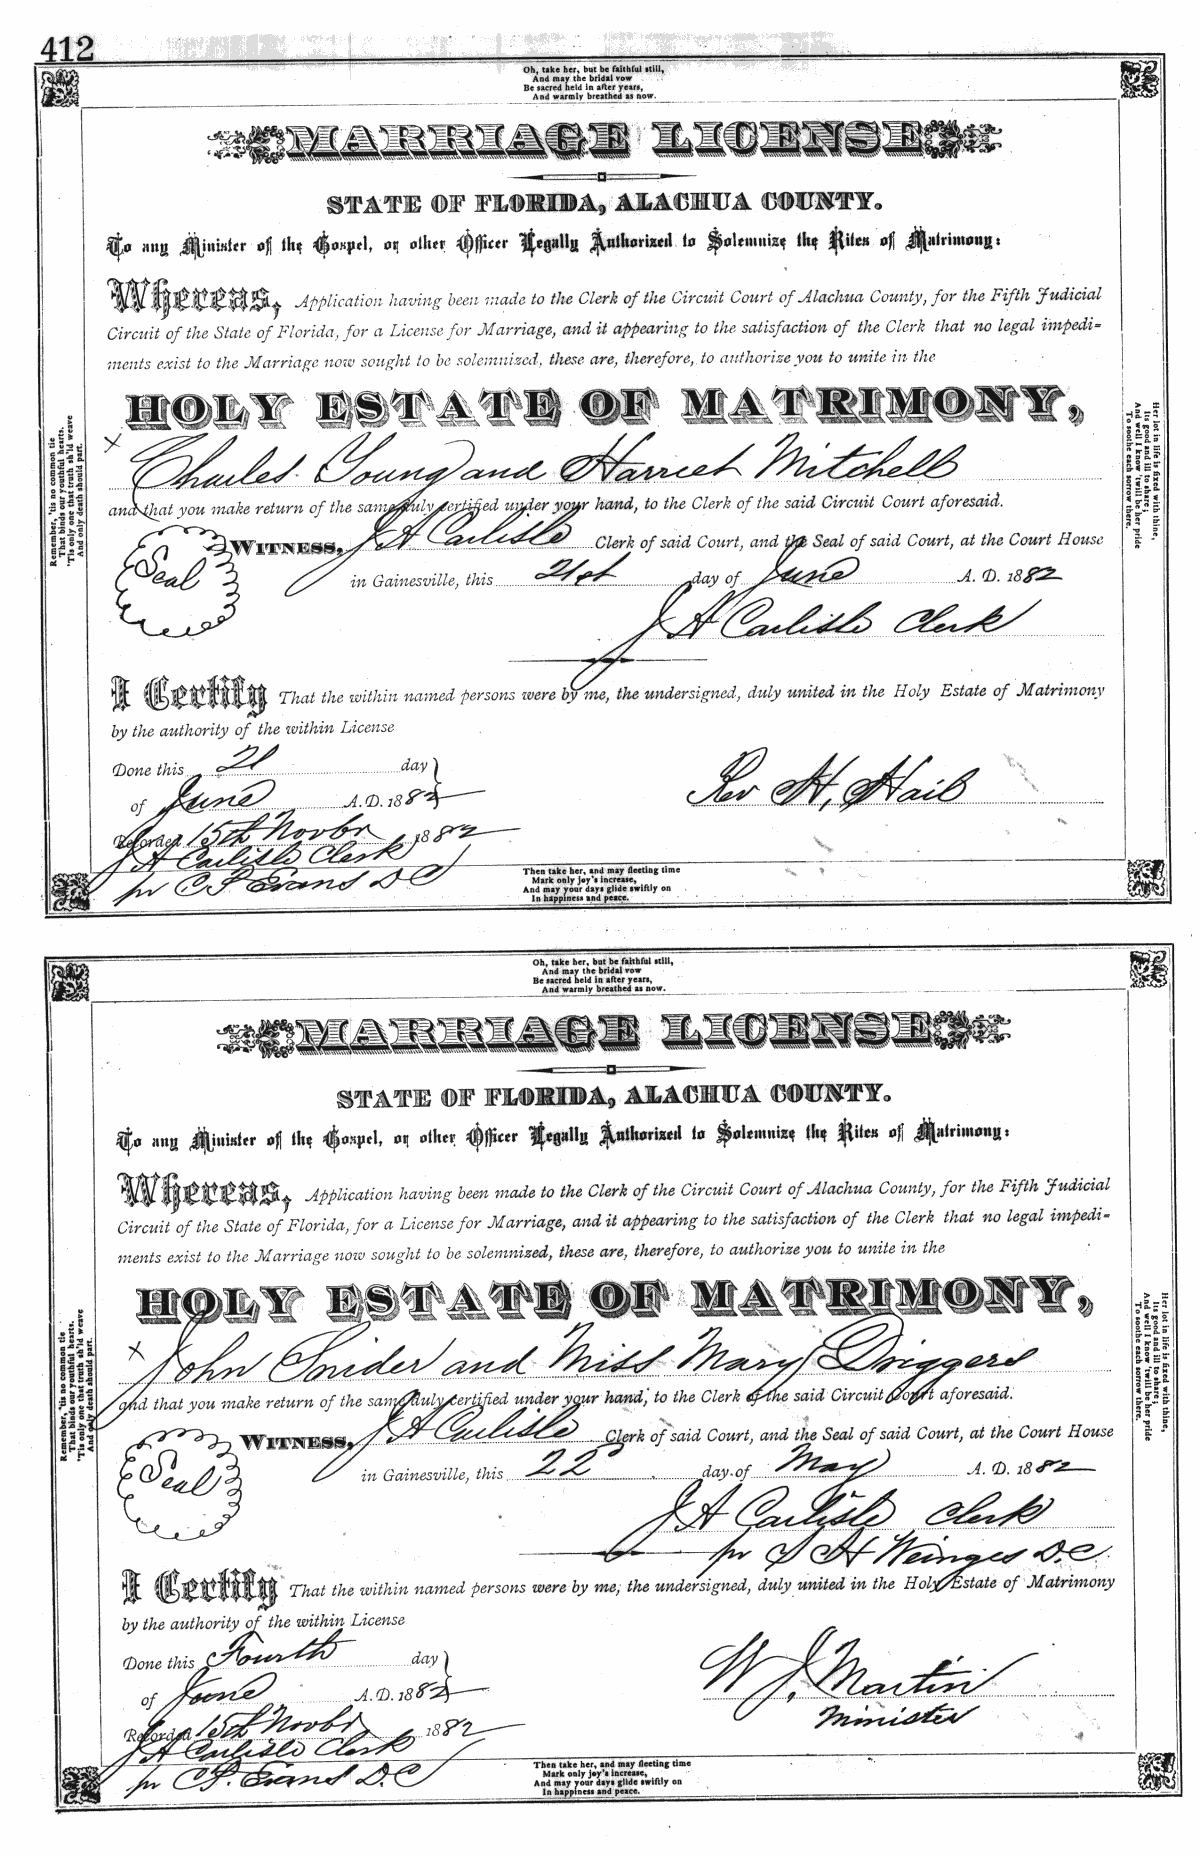 412
Oh, take her, but be faithful still,
And may the bridal vow
Be sacred held in after years,
And warmly breathed as now.
MARRIAGE LICENSE
STATE OF FLORIDA, ALACHUA COUNTY.
To any Minister of the Gospel, or other Officer Legally Authorized to Solemnize the Rites of Matrimony:
Whereas, Application having been made to the Clerk of the Circuit Court of Alachua County, for the Fifth Judicial
Circuit of the State of Florida, for a License for Marriage, and it appearing to the satisfaction of the Clerk that no legal impedi=
ments exist to the Marriage now sought to be solemnized, these are, therefore, to authorize you to unite in the
HOLY ESTATE OF MATRIMONY,
x Charles Young and Harriet Mitchell
and that you make return of the same duly certified under your hand, to the Clerk of the said Circuit Court aforesaid.
Seal
WITNESS, J A Carlisle Clerk of said Court, and the Seal of said Court, at the Court House
in Gainesville, this 21st day of June A. D. 1882
J A Carlisle Clerk
I Certify That the within named persons were by me, the undersigned, duly united in the Holy Estate of Matrimony
by the authority of the within License
Done this 21 day
of June A.D. 1882
Rev H, Hail
Recorded 15th Novbr 1882
J A Carlisle Clerk
pr C P. Evans D C
Then take her, and may fleeting time
Mark only joy's increase,
And may your days glide swiftly on
In happiness and peace.
Remember, 'tis no common tie
That binds our youthful hearts,
'Tis only one that truth sh'ld weave
And only death should part.
Her lot in life is fixed with thine,
Its good and ill to share;
And well I know 'twill be her pride
To soothe each sorrow there.
Oh, take her, but be faithful still,
And may the bridal vow
Be sacred held in after years,
And warmly breathed as now.
MARRIAGE LICENSE
STATE OF FLORIDA, ALACHUA COUNTY.
To any Minister of the Gospel, or other Officer Legally Authorized to Solemnize the Rites of Matrimony:
Whereas, Application having been made to the Clerk of the Circuit Court of Alachua County, for the Fifth Judicial
Circuit of the State of Florida, for a License for Marriage, and it appearing to the satisfaction of the Clerk that no legal impedi=
ments exist to the Marriage now sought to be solemnized, these are, therefore, to authorize you to unite in the
HOLY ESTATE OF MATRIMONY,
x John Snider and Miss Mary Driggers
and that you make return of the same duly certified under your hand, to the Clerk of the said Circuit Court aforesaid.
Seal
WITNESS, J A Carlisle Clerk of said Court, and the Seal of said Court, at the Court House
in Gainesville, this 22 day of May A. D. 1882
J A Carlisle Clerk
pr S H Weinges D.C.
I Certify That the within named persons were by me, the undersigned, duly united in the Holy Estate of Matrimony
by the authority of the within License
Done this Fourth day
of June A.D. 1882
W J. Martin
Minister
Recorded 15th Novbr 1882
J A Carlisle Clerk
pr C P. Evans D.C
Then take her, and may fleeting time
Mark only joy's increase,
And may your days glide swiftly on
In happiness and peace.
Remember, 'tis no common tie
That binds our youthful hearts,
'Tis only one that truth sh'ld weave
And only death should part.
Her lot in life is fixed with thine,
Its good and ill to share;
And well I know 'twill be her pride
To soothe each sorrow there.